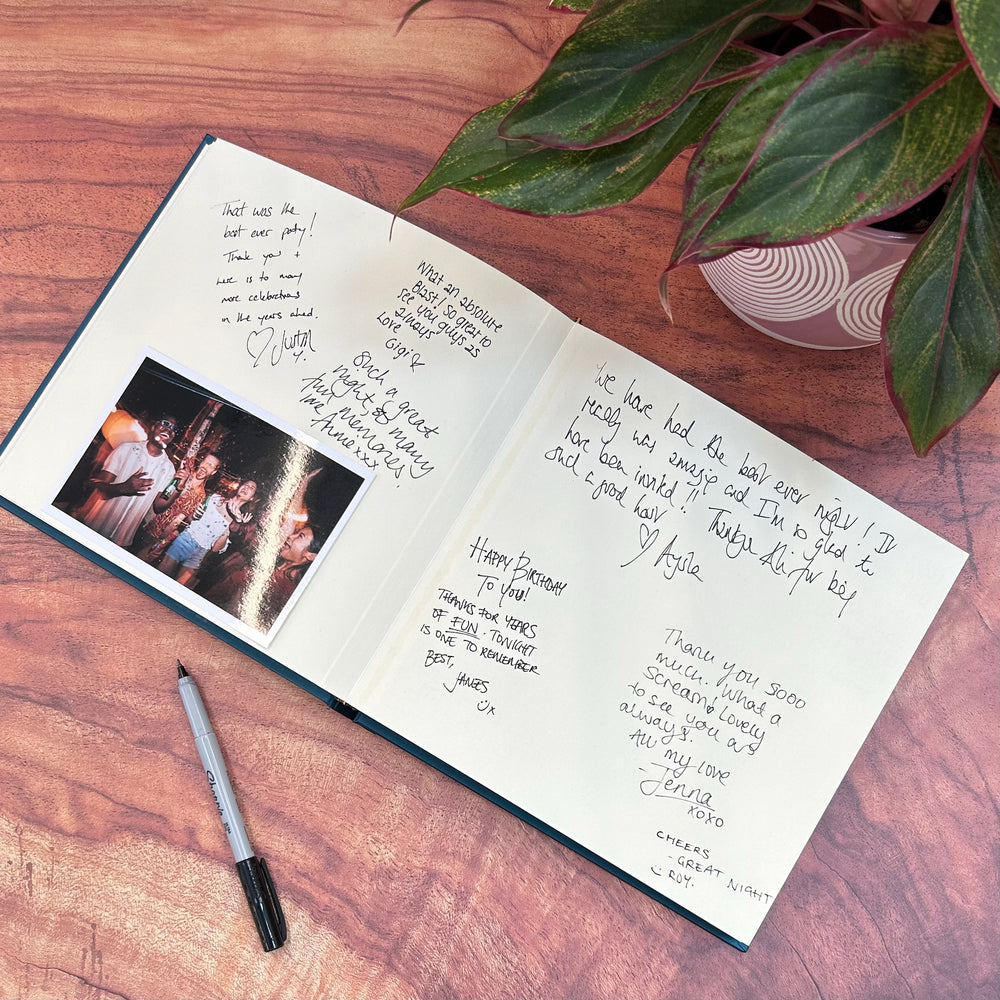 That was the
best ever party!
Thank you +
here is to many
more celebrations
in the years ahead.
♡ Justin
What an absolute
Blast! So great to
see you guys as
always
Love
Gigi x
Such a great
night, so many
fun memories,
love
Annie xxx
HAPPY BIRTHDAY
TO YOU!
THANKS FOR YEARS
OF FUN. TONIGHT
IS ONE TO REMEMBER
BEST,
JAMES
We have had the best ever night! It
really was amazing and I'm so glad to
have been invited!! Thankyou Ali for being
such a good host
♡ Aysha
Thank you sooo
much. What a
Scream! Lovely
to see you as
always.
All my love
- Jenna
xoxo
CHEERS
- GREAT NIGHT
ROY.
Sharpie